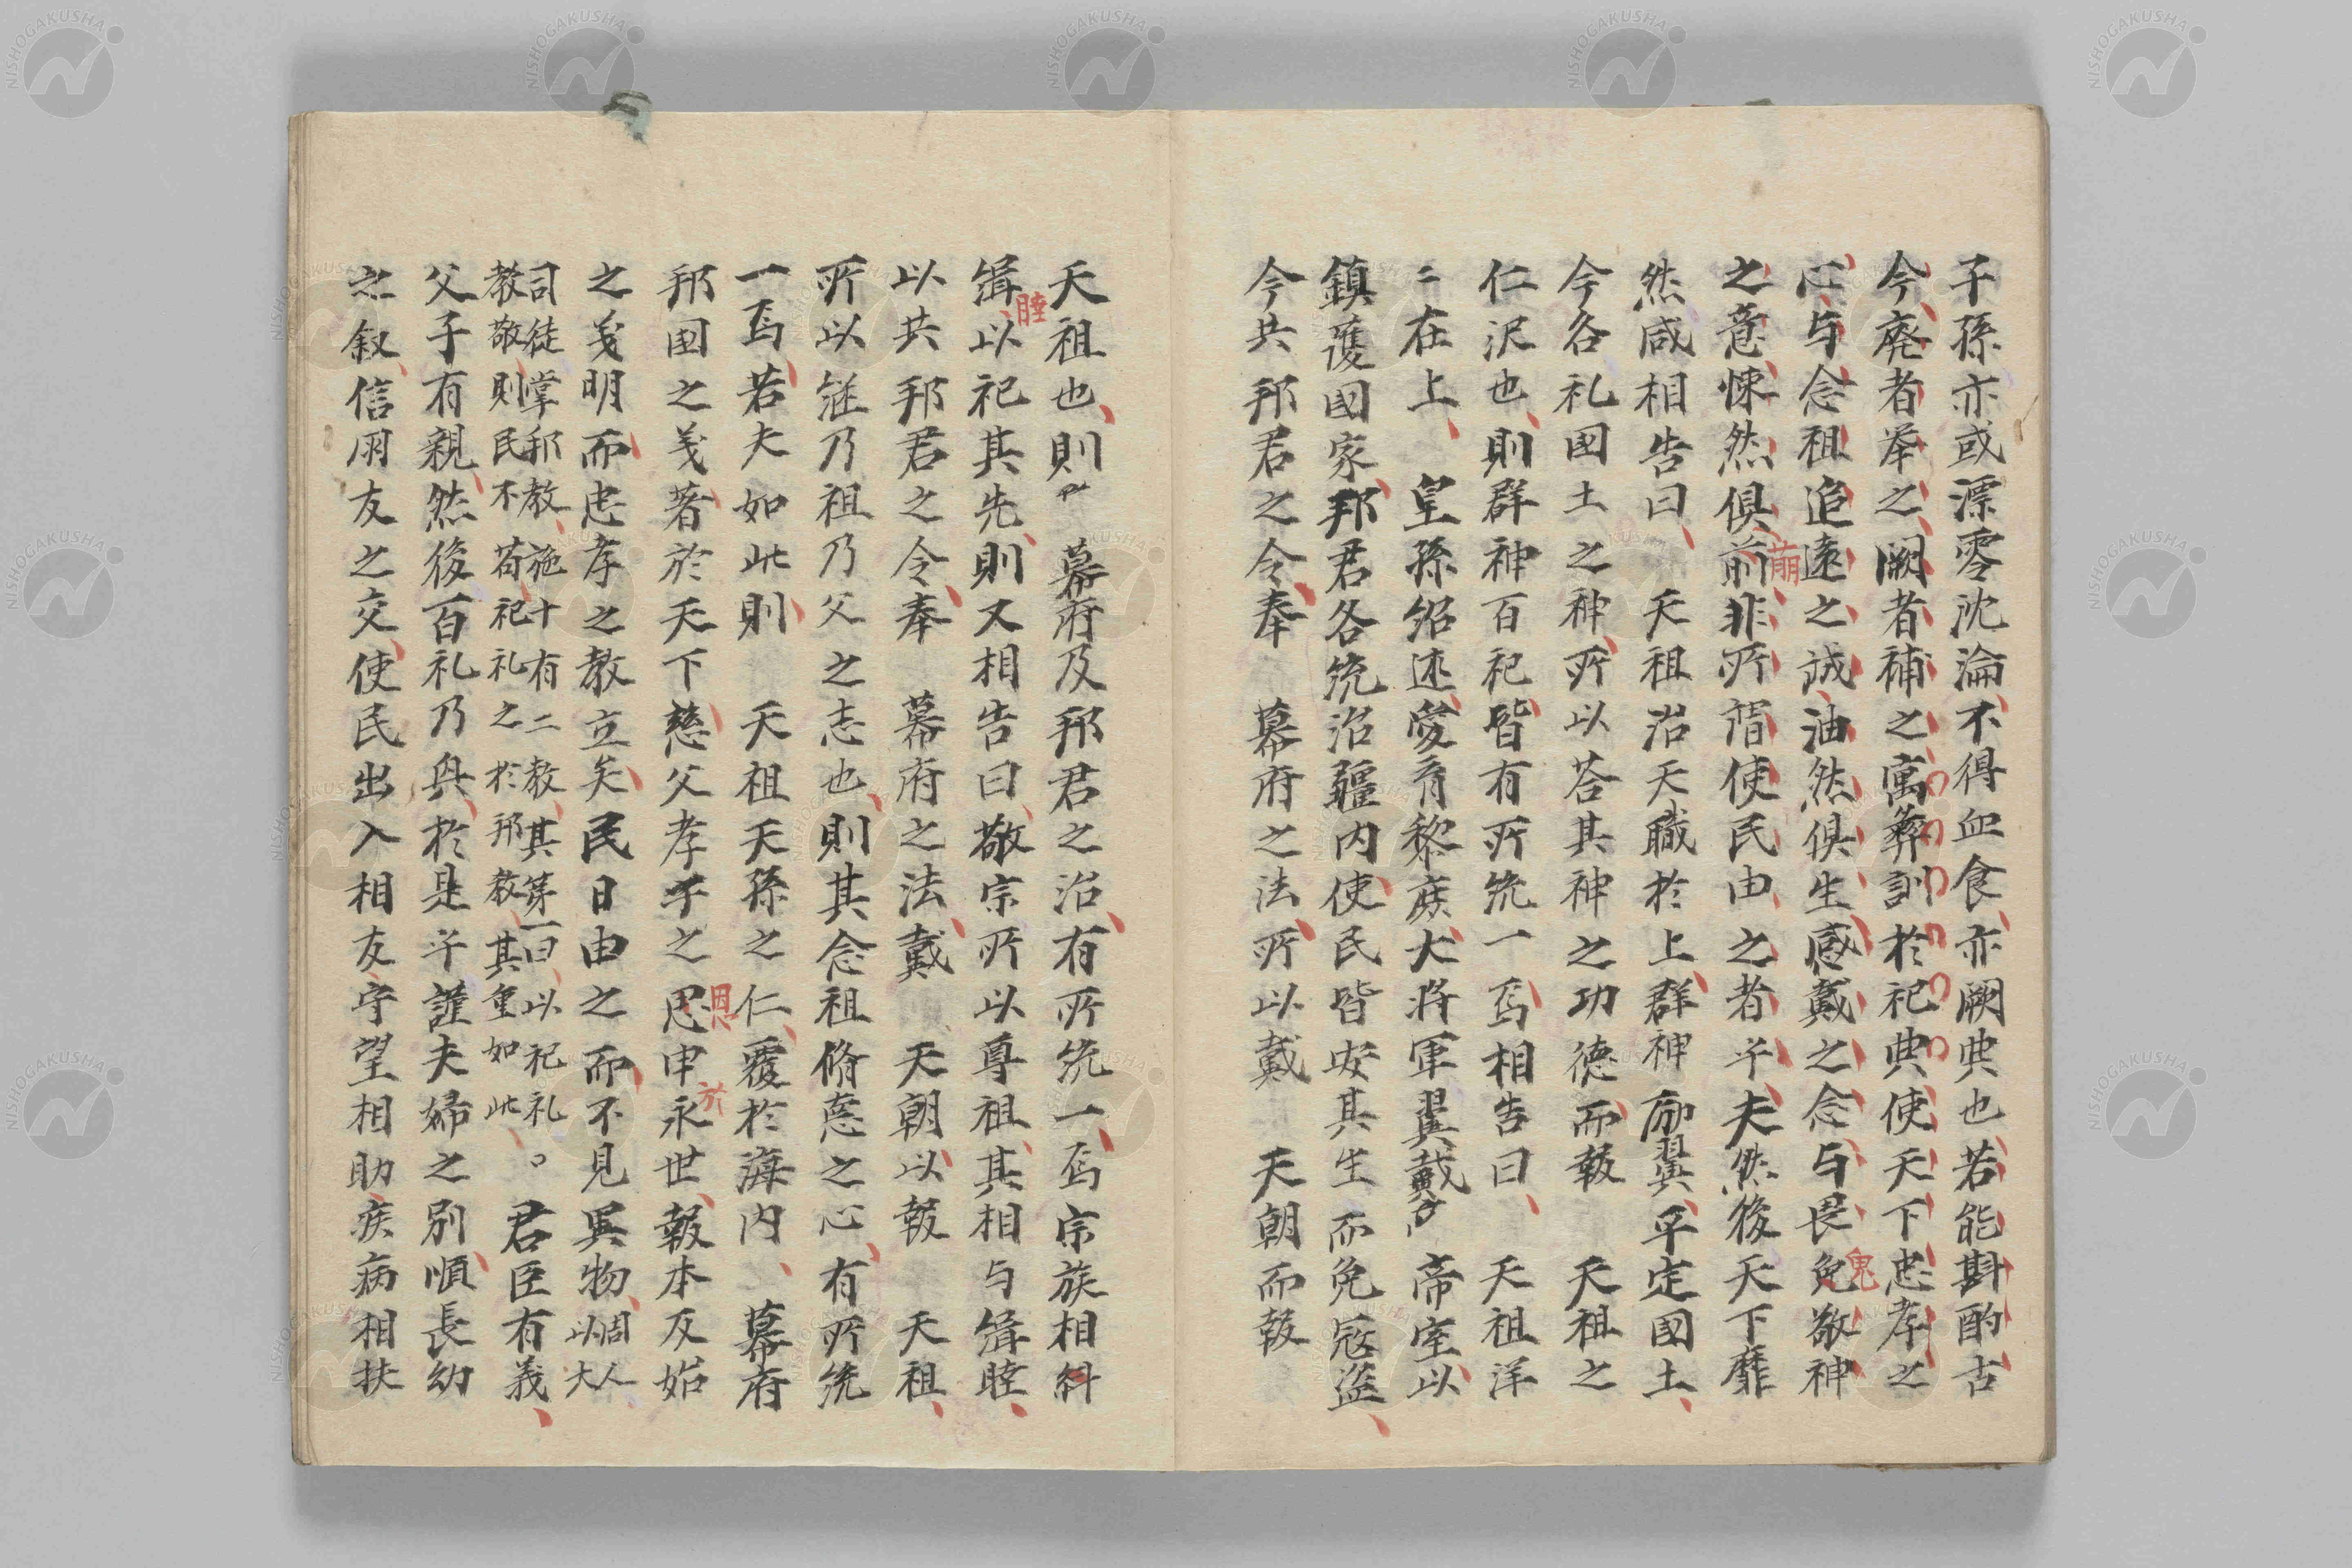 子孫亦或漂零沈淪不得血食亦闕典也若能斟酌古
今廃者挙之闕者補之寓彜訓於祀典使天下忠孝之
心与念祖追遠之誠油然倶生感戴之念与畏免敬神
鬼
之意悚然倶前非所謂使民由之者乎夫然後天下靡
萠
然咸相告曰 天祖治天職於上群神亮翼平定国土
今各礼国土之神所以荅其神之功徳而報 天祖之
仁沢也則群神百祀皆有所統一焉相告曰 天祖洋
〻在上 皇孫紹述愛育黎庶大将軍翼戴 帝室以
鎮護国家邦君各統治疆内使民皆安其生而免寇盗
今共邦君之令奉 幕府之法所以戴 天朝而報
天祖也則 幕府及邦君之治有所統一焉宗族相糾
緝以祀其先則又相告曰敬宗所以尊祖其相与緝睦
睦
以共邦君之令奉 幕府之法戴 天朝以報 天祖
所以 乃祖乃父之志也則其念祖脩徳之心有所統
一焉若夫如此則 天祖天孫之仁覆於海内 幕府
邦国之義著於天下慈父孝子之思申永世報本反始
恩
於
之義明而忠孝之教立矣民日由之而不見異物周人以大
司徒掌邦教施十有二教其第一曰以祀礼
教敬則民不苟祀礼之於邦教其重如此。君臣有義
父子有親然後百礼乃興於是乎謹夫婦之別順長幼
之叙信朋友之交使民出入相友守望相助疾病相扶